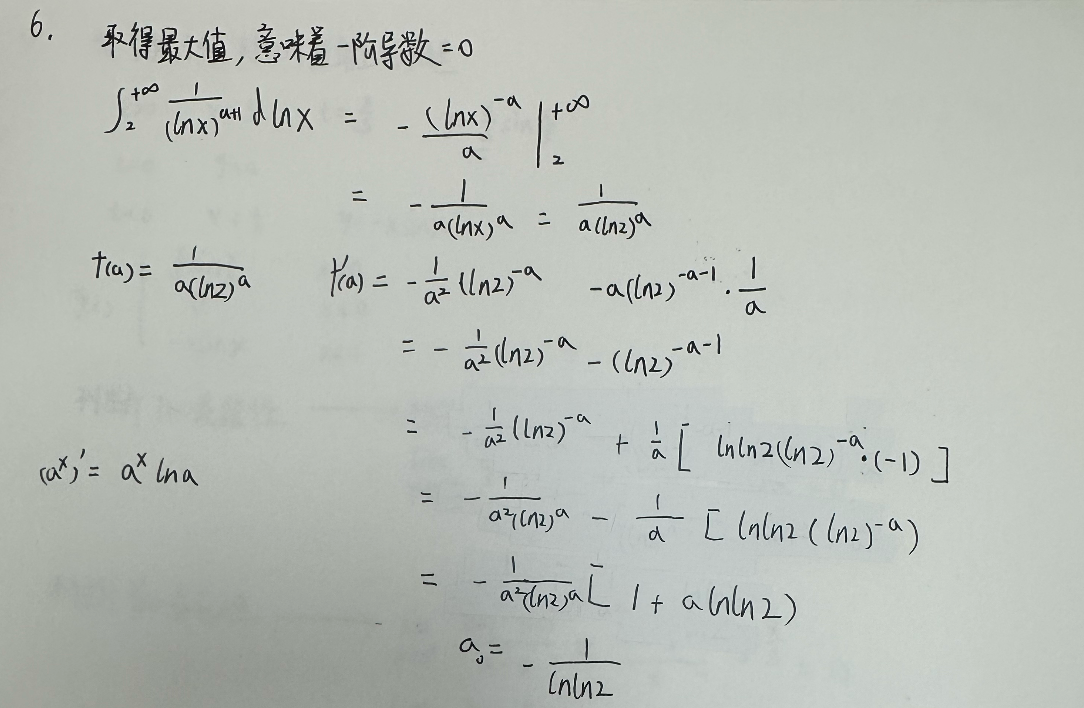 6. 取得最大值，意味着一阶导数=0
∫₂^{+∞} 1/(lnx)^{a+1} dlnx = - (lnx)^{-a}/a |₂^{+∞}
= - 1/a(lnx)^a = 1/a(ln2)^a
f(a) = 1/a(ln2)^a f'(a) = - 1/a² (ln2)^{-a} - a(ln2)^{-a-1} · 1/a
= - 1/a² (ln2)^{-a} - (ln2)^{-a-1}
= - 1/a² (ln2)^{-a} + 1/a [ lnln2(ln2)^{-a}·(-1) ]
(a^x)' = a^x lna
= - 1/a²(ln2)^a - 1/a [ lnln2 (ln2)^{-a})
= - 1/a²(ln2)^a [ 1 + alnln2)
a₀ = - 1/lnln2